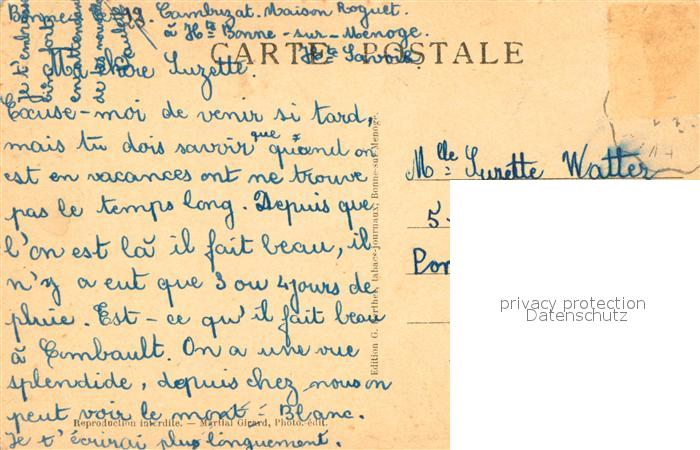 Cambuzat. Maison Roguet.
à Hte Bonne-sur-Menoge.
Hte Savoie
CARTE POSTALE
Ma chère Suzette.
Excuse-moi de venir si tard,
mais tu dois savoir que quand on
est en vacances ont ne trouve
pas le temps long. Depuis que
l'on est là il fait beau, il
n'y a eut que 3 ou 4 jours de
pluie. Est-ce qu'il fait beau
à Combault. On a une vue
splendide, depuis chez nous on
peut voir le mont-Blanc.
Je t'écrirai plus longuement.
je t'embrasse
bien fort
en attendant
de tes nouvelles
Paulette
Mlle Suzette Watter
5.
Pon
Edition G. Berthet, tabacs-journaux, Bonne-sur-Menoge.
Reproduction interdite. — Martial Girard, Photo. édit.
privacy protection
Datenschutz